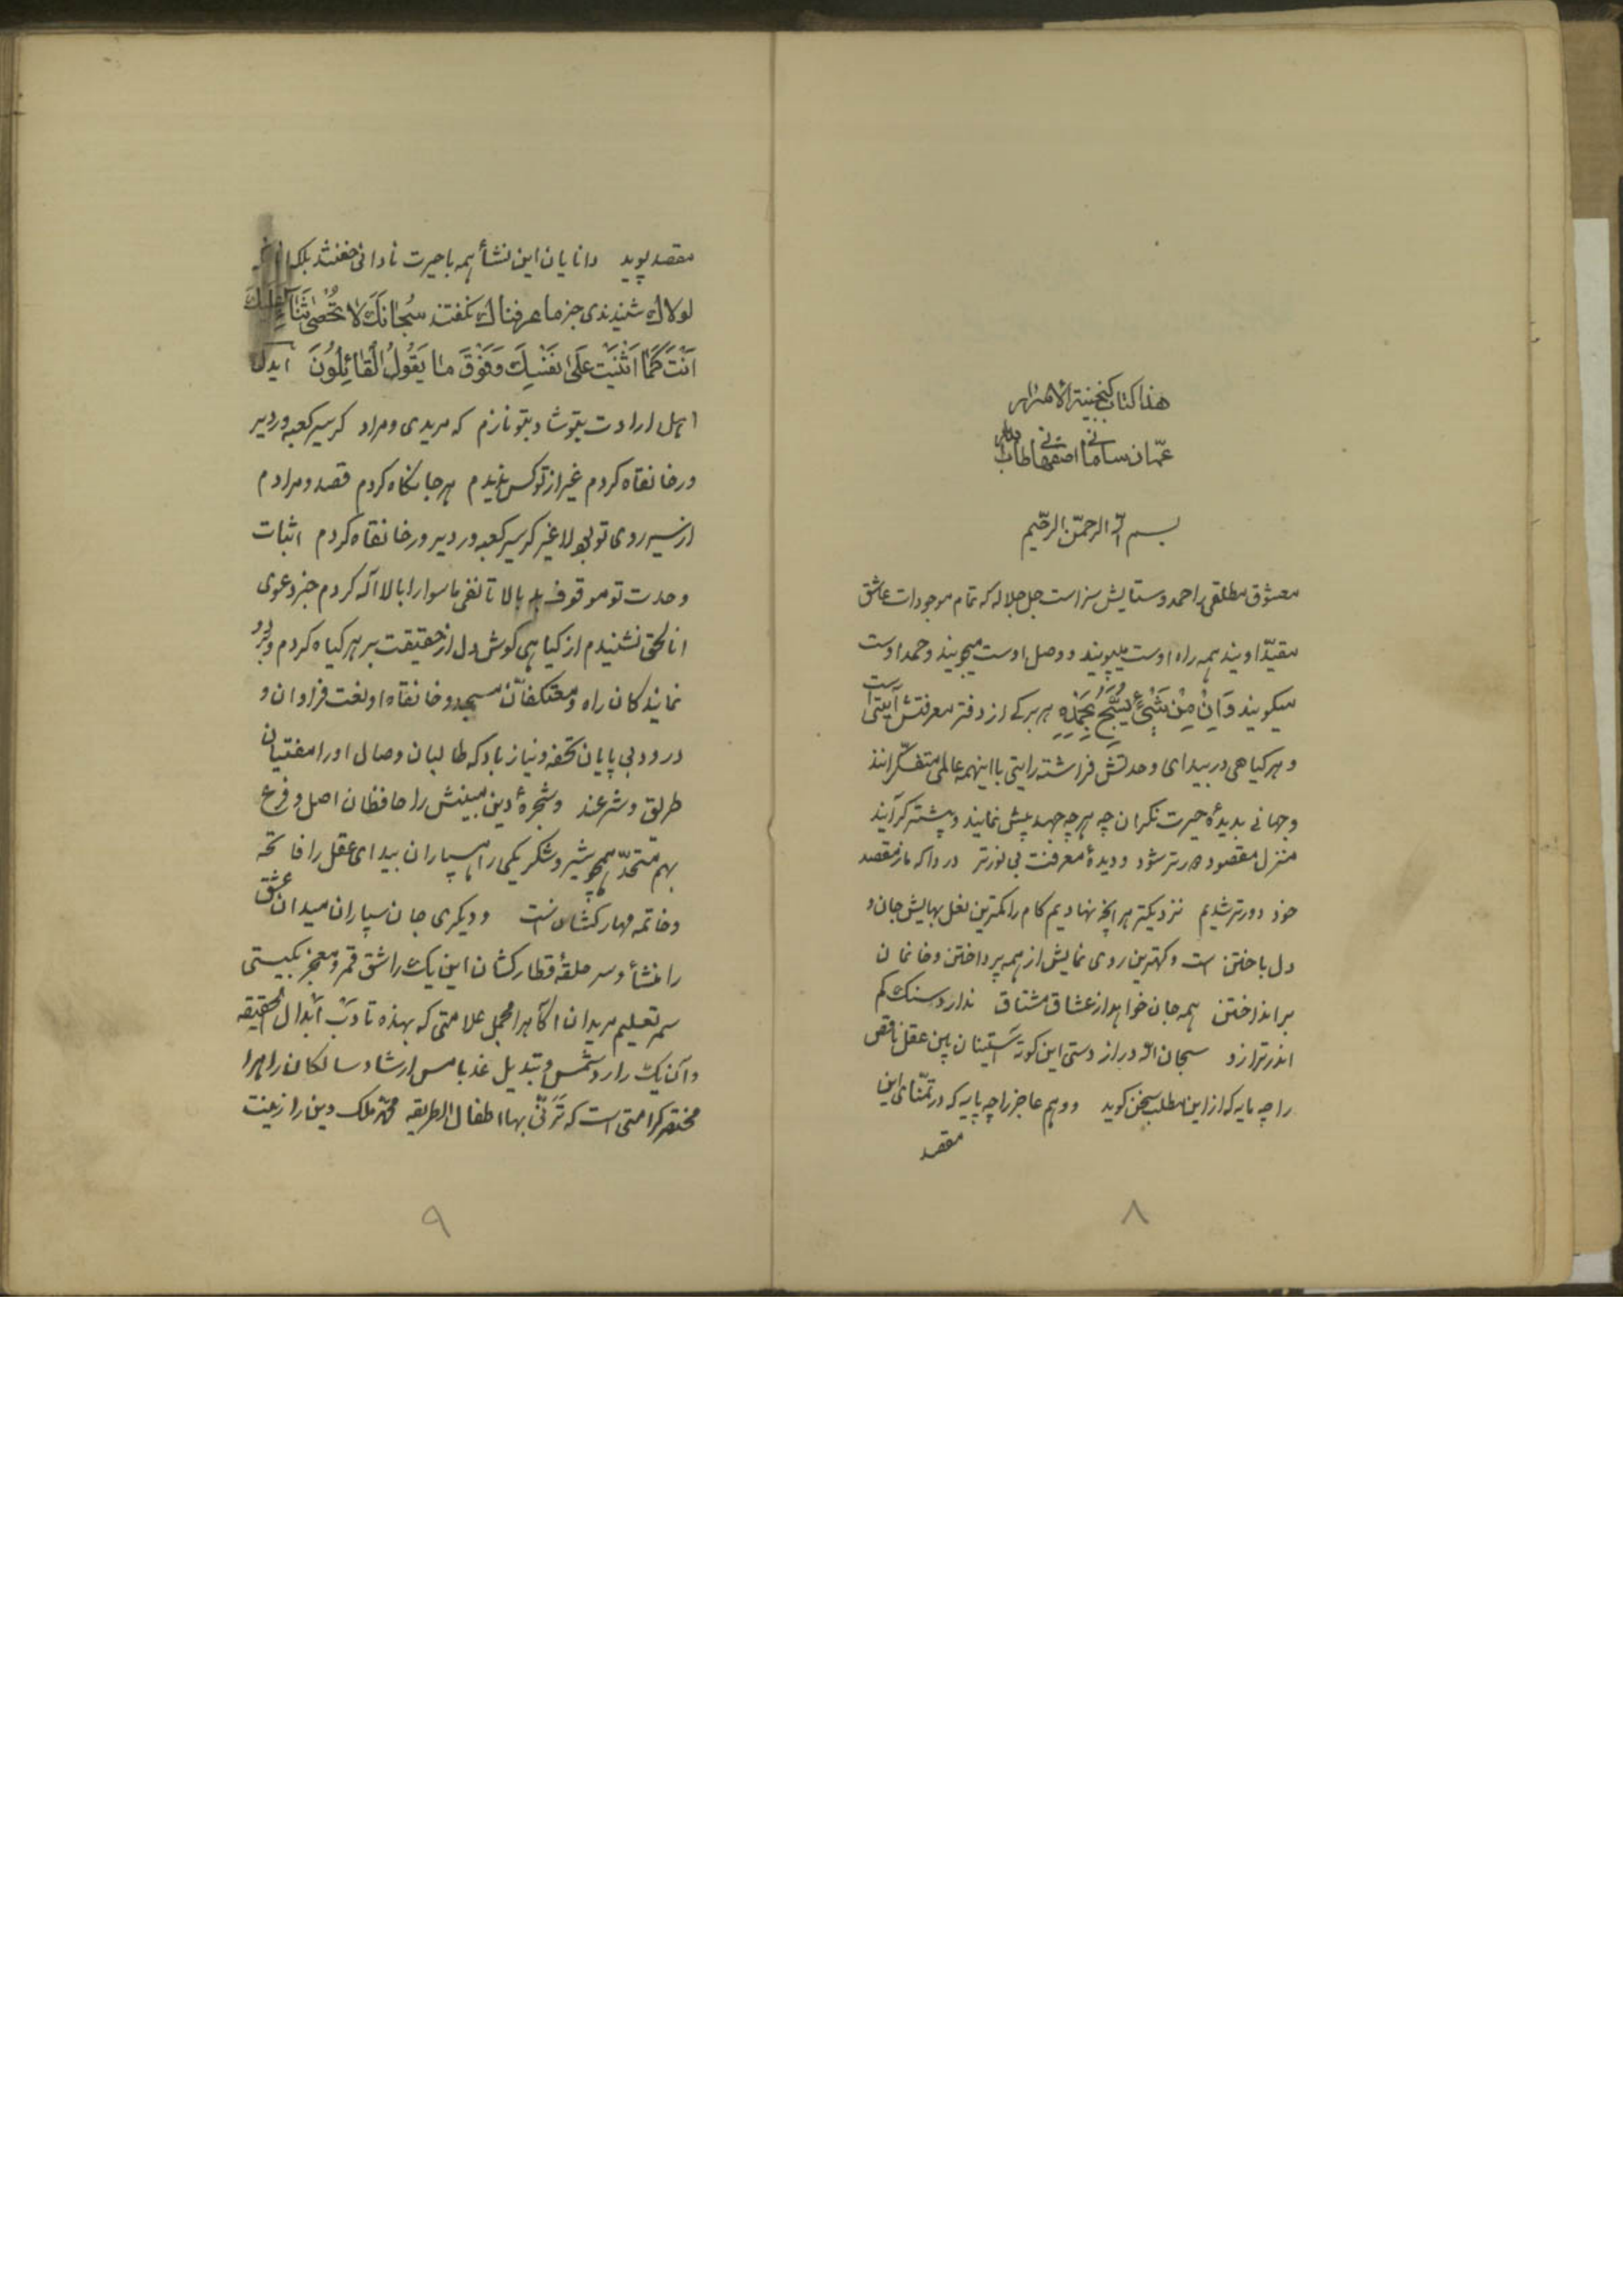 هذا کتاب گنجینة الاسرار
عمّان سامانی اصفهانی طاب
بسم الله الرحمن الرحیم
معشوق مطلقی را حمد و ستایش سزاست جل جلاله که تمام موجودات عاشق
مقیّد اویند همه راه اوست میپویند و وصل اوست میجویند و حمد اوست
میکویند وَاِنْ مِنْ شَیْءٍ یُسَبِّحُ بِحَمْدِهِ هر برکی از دفتر معرفتش آیتی است
و هر کیاهی در بیدای وحدتش فراشته رایتی با اینهمه عالمی متفکّرانند
و جهانی بدیدهٔ حیرت نکران چه هرچه جهد پیش نمایند و پیشتر کرآیند
منزل مقصود دورتر شود و دیدهٔ معرفت بی نورتر دردا که ما ز مقصد
خود دورتر شدیم نزدیکتر هر آنچه نهادیم کام را کمترین نعل بهایش جان و
دل باختن است و کهترین روی نمایش از همه پرداختن و خانمان
برانداختن همه جان خواهد از عشاق مشتاق ندارد سنک کم
اندر ترازو سبحان الله دراز دستی این کوته آستینان بین عقل ناقص
را چه مایه که از این مطلب سخن کوید و وهم عاجز را چه پایه که در تمنّای این
مقصد
۸
مقصد پوید دانایان این نشأ همه با حیرت نادانی خفتند بلکه
لولاك شنیدندی جز ما عرفناك نکفتند سُبْحانَكَ لا نُحْصی ثَنآءً عَلَیْكَ
اَنْتَ كَمٰا اَثْنَیْتَ عَلیٰ نَفْسِكَ وَفَوْقَ مٰا یَقُولُ الْقٰائِلُونَ ایدل
اهل ارادت بتو شاد بتو نازم که مریدی و مراد کر سیر کعبه و دیر
و خانقاه کردم غیر از تو کس ندیدم هر جا نکاه کردم قصد و مرادم
از سیر روی تو بود لا غیر کر سیر کعبه و دیر و خانقاه کردم اثبات
وحدت تو موقوف بد بالا تا نفی ماسوا را با لا اله کردم جز دعوی
انا الحق نشنیدم از کیاهی کوش دل از حقیقت بر هر کیاه کردم و بر
نمایندکان راه و معتکفان مسجد و خانقاه او نعت فراوان و
درود بی پایان تحفه و نیاز باد که طالبان وصال او را مفتیان
طریق و شرعند و شجرهٔ دین مبینش را حافظان اصل و فرع
بهم متحدّ همچو شیر و شکر یکی راهسپاران بیدای عقل را فاتحه
و خاتمه مهارکشان است و دیکری جان سپاران میدان عشق
را منشأ و سر حلقهٔ قطارکشان این یك را شق قمر و معجز بکیستی
سمر تعلیم مریدان اکاهرا مجمل علامتی که بهذه تادب ابدال الحقیقه
و آن یك را رد شمس و تبدیل غد بامس ارشاد سالکان راهرا
مختصر کرامتی است که تَرَبّی بها اطفال الطریقه محمد ملک دین را زینت
۹